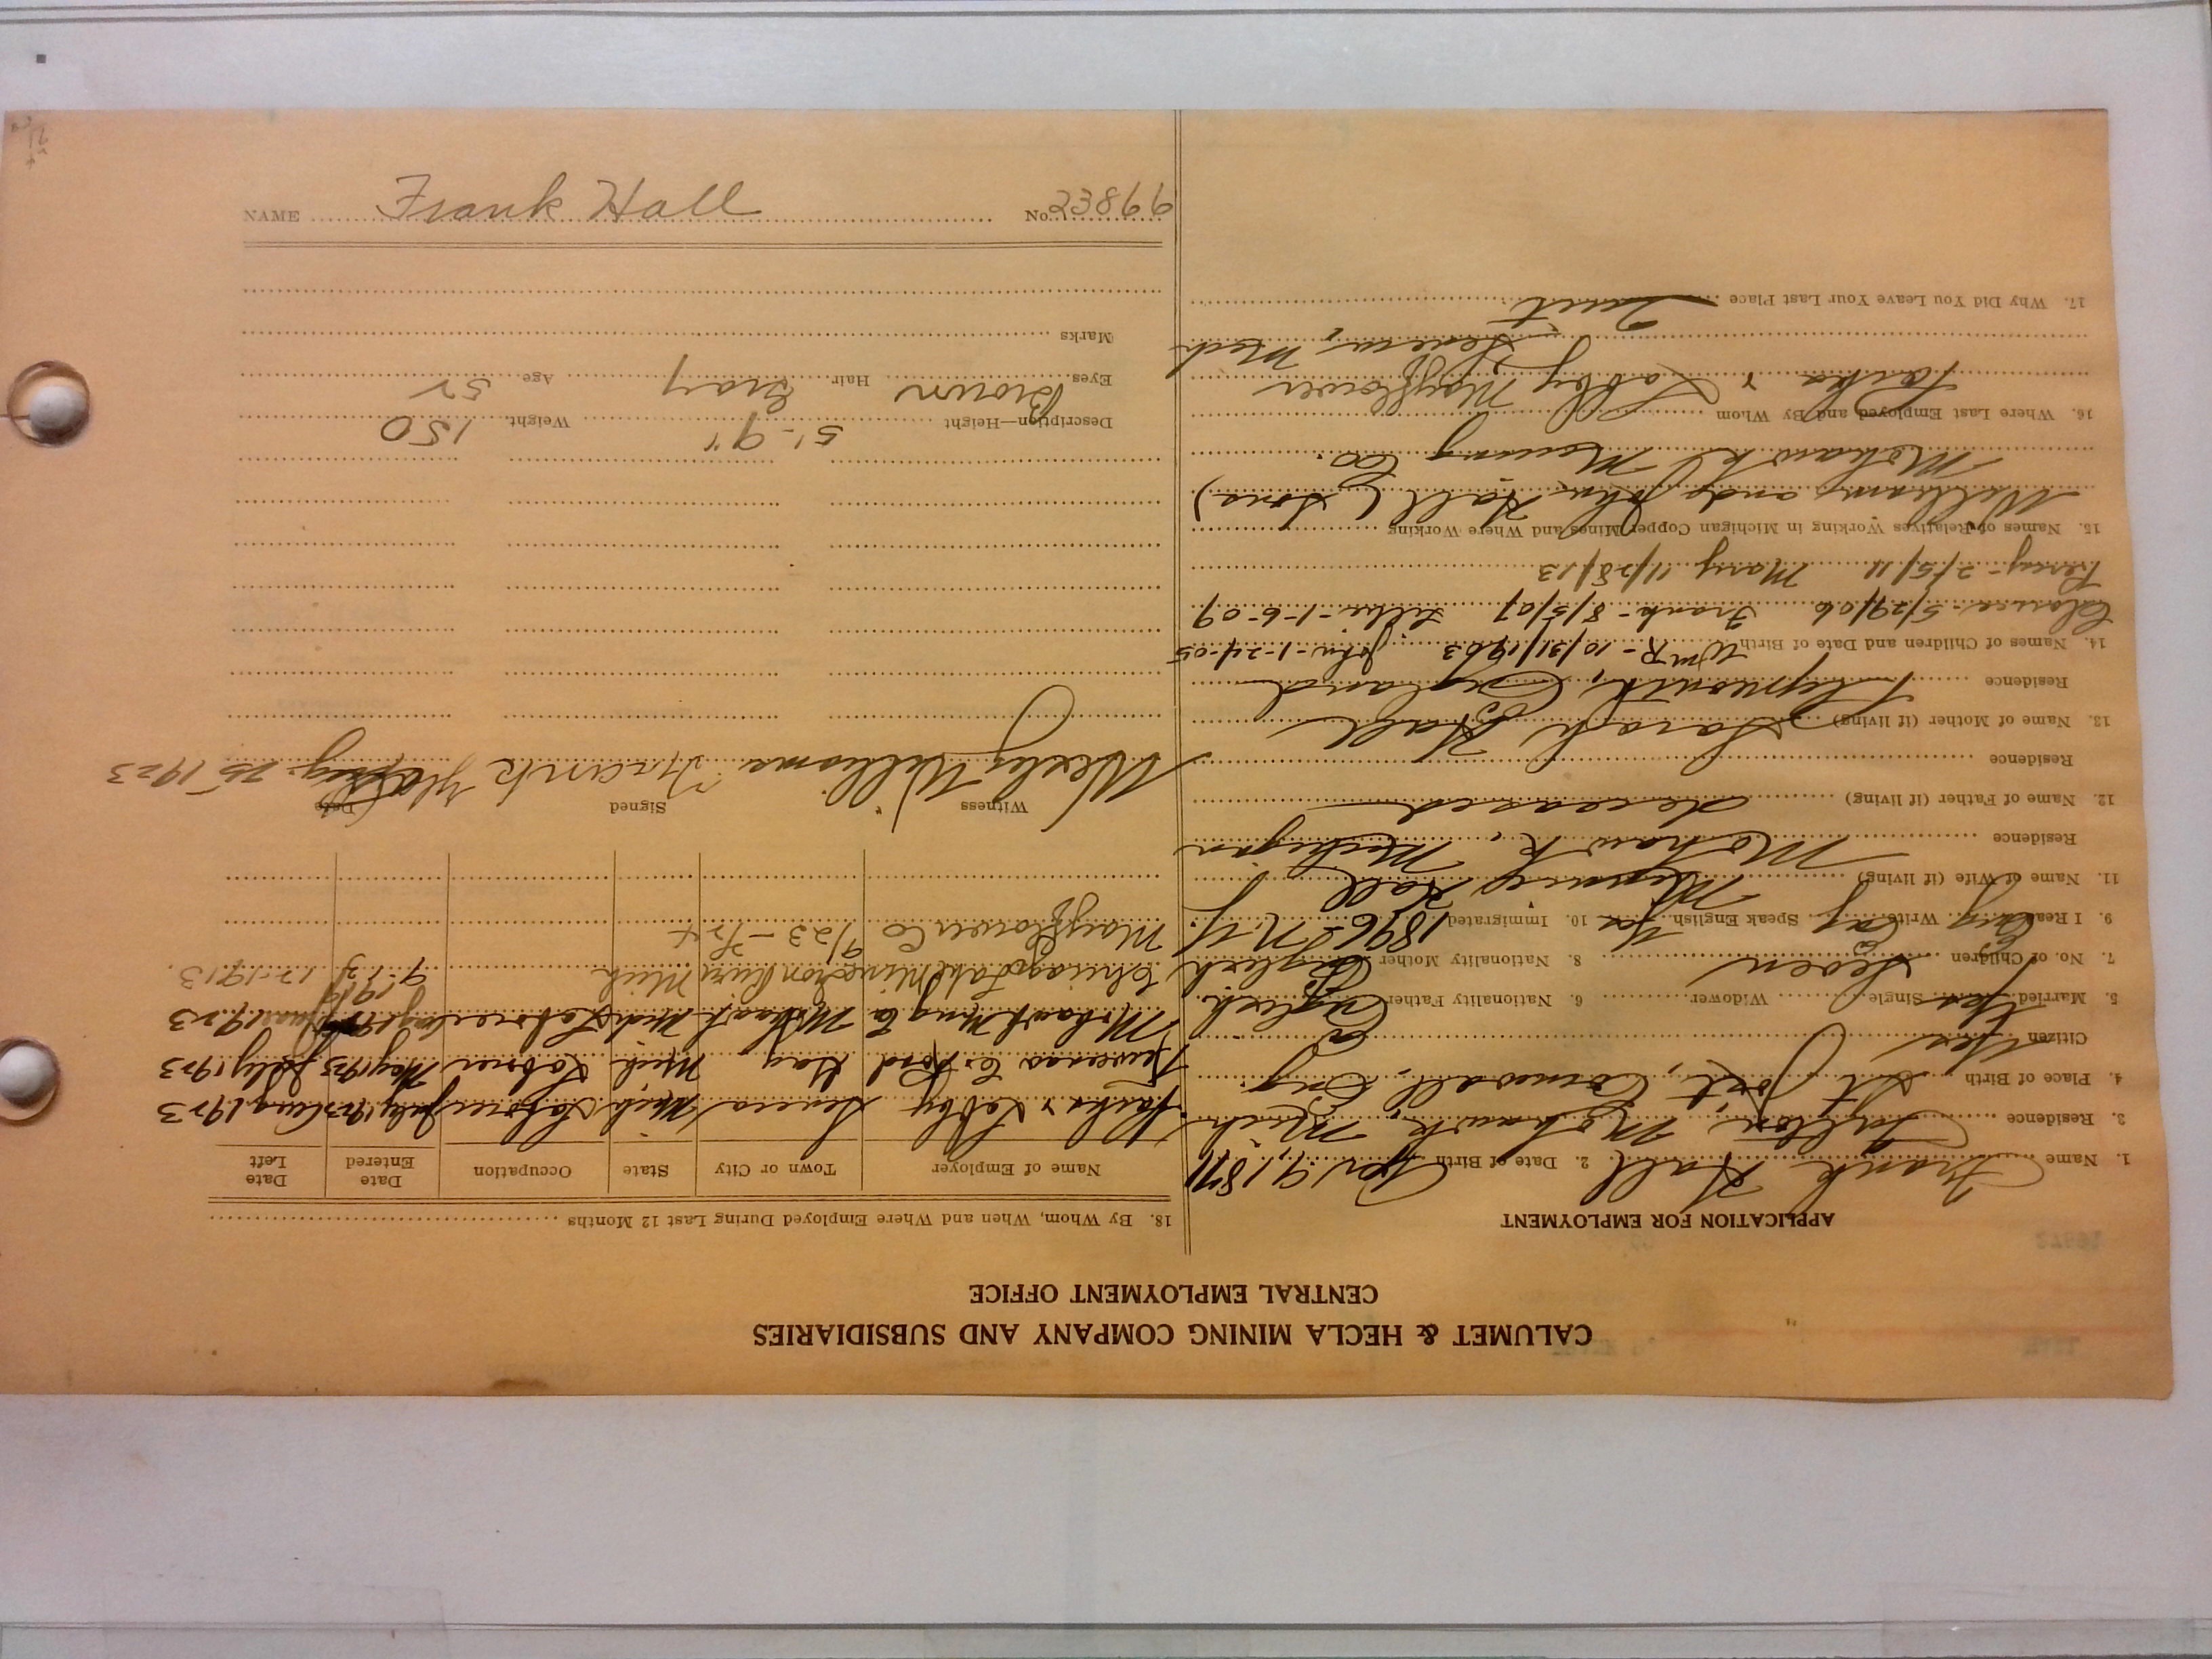 CALUMET & HECLA MINING COMPANY AND SUBSIDIARIES
CENTRAL EMPLOYMENT OFFICE
APPLICATION FOR EMPLOYMENT
1. Name Frank Hall 2. Date of Birth 9, 1871
3. Residence Fulton, Mohawk, Mich.
4. Place of Birth St Just, Cornwall, Eng.
Citizen Yes
5. Married Yes Single Widower 6. Nationality Father English
7. No. of Children Seven 8. Nationality Mother English
9. I Read Eng Write Eng Speak English Yes 10. Immigrated 1896 N.Y.
11. Name of Wife (if living) Hall
Residence Mohawk, Michigan
12. Name of Father (if living) deceased
Residence
13. Name of Mother (if living) Sarah Hall
Residence Plymouth, England
14. Names of Children and Date of Birth Wm R- 10/31/1903 John-1-24-05
Clarence- 5/29/06 Frank- 8/5/07 1-6-09
Percy- 2/5/11 Mary 11/28/13
15. Names of Relatives Working in Michigan Copper Mines and Where Working
William and John Hall (Sons)
Mohawk Mining Co.
16. Where Last Employed and By Whom
& Mayflower
Mich
17. Why Did You Leave Your Last Place Quit
18. By Whom, When and Where Employed During Last 12 Months
Name of Employer Town or City State Occupation Date Entered Date Left
& Seneca Mich Laborer July 1923 Aug. 1923
Keweenaw Co. Road Gay Mich Laborer May 1923 July 1923
Mohawk Mng Co Mohawk Mich Laborer 1923
Mine Iron River Mich 1913
Mayflower Co 9/23 -
Witness Signed Date
Wesley Williams Frank Hall Aug. 25 1923
Description—Height 5'-9" Weight 150
Eyes Brown Hair Gray Age 52
Marks
NAME Frank Hall No. 23899